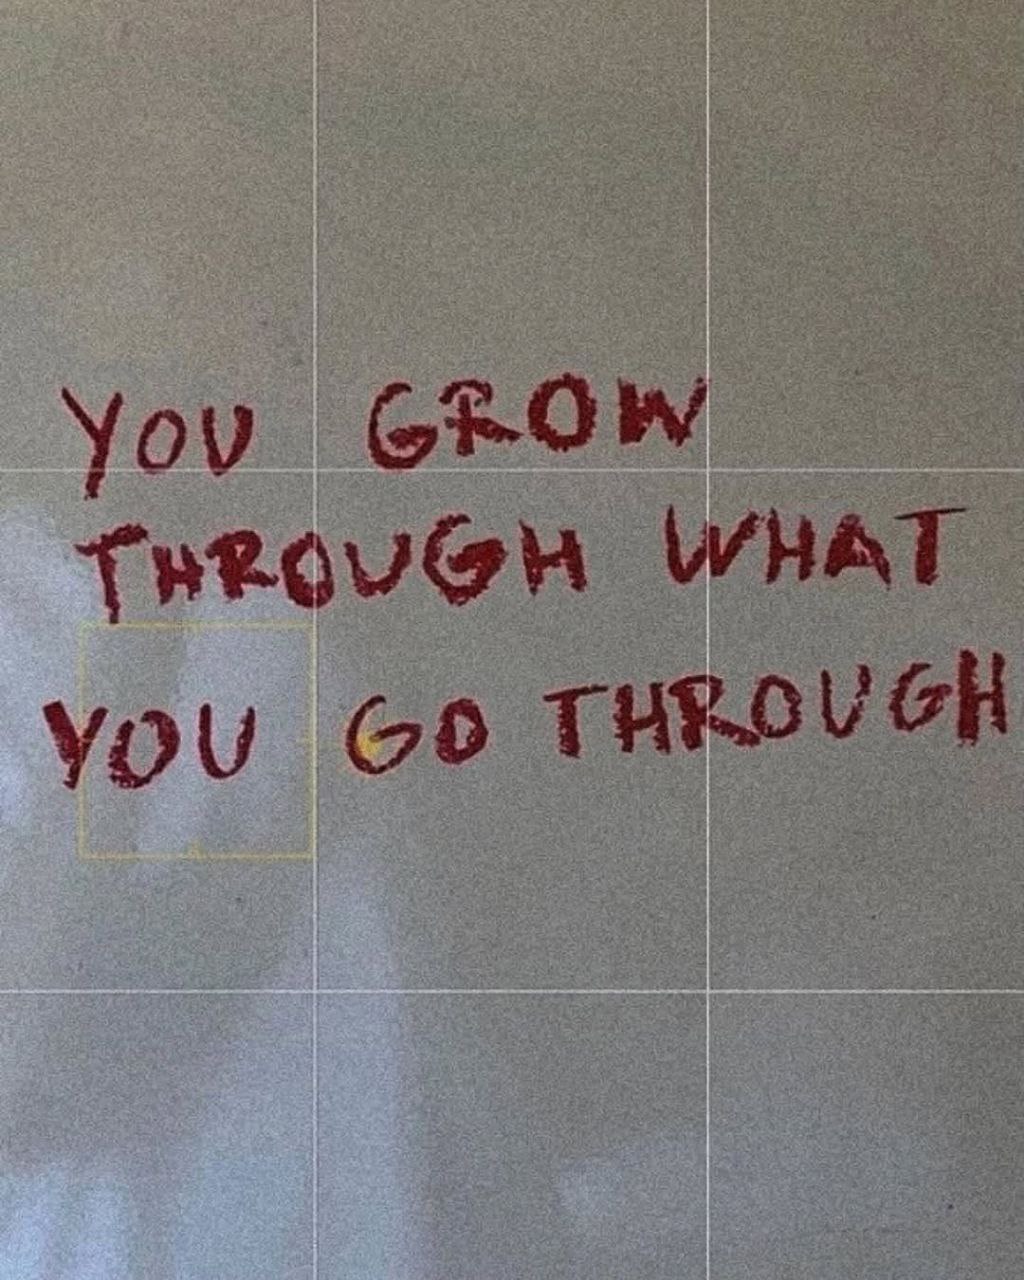 YOU GROW
THROUGH WHAT
YOU GO THROUGH